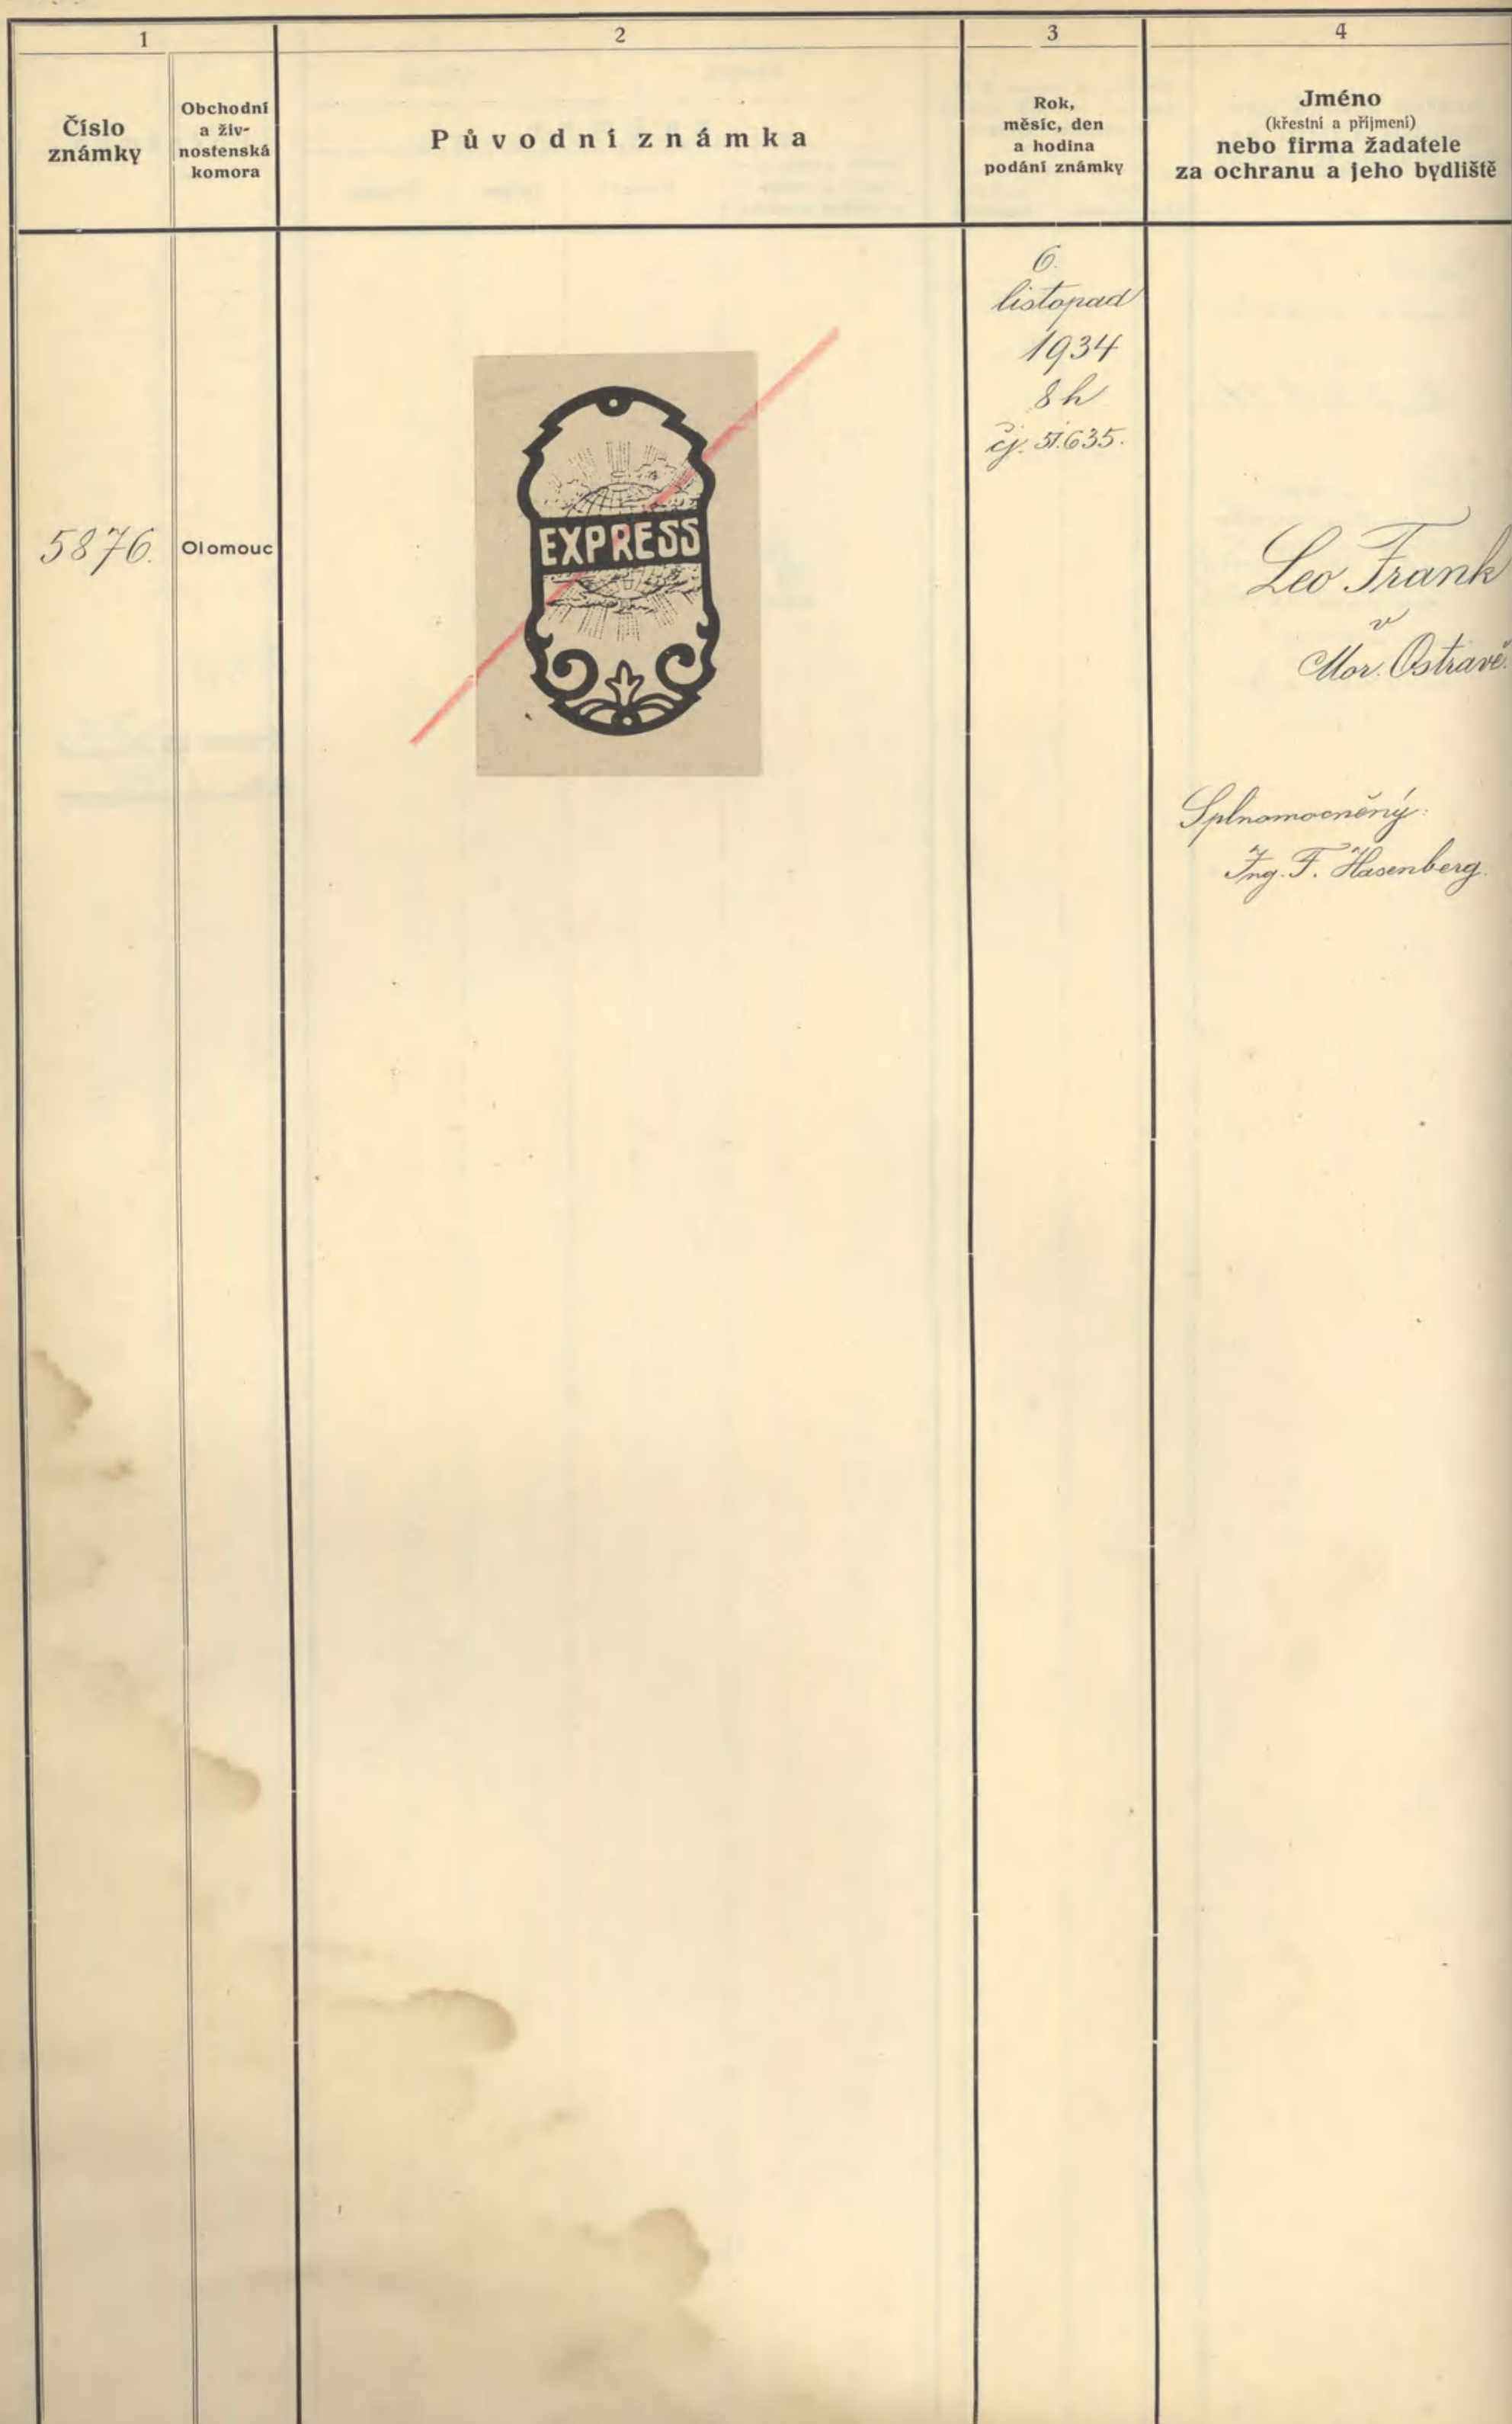 1
2
3
4
Číslo
známky
Obchodní
a živ-
nostenská
komora
Původní známka
Rok,
měsíc, den
a hodina
podání známky
Jméno
(křestní a příjmení)
nebo firma žadatele
za ochranu a jeho bydliště
5876.
Olomouc
EXPRESS
6.
listopad
1934
8 h
čj. 51.635.
Leo Frank
v
Mor. Ostravě.
Splnomocněný:
Ing. F. Hasenberg.